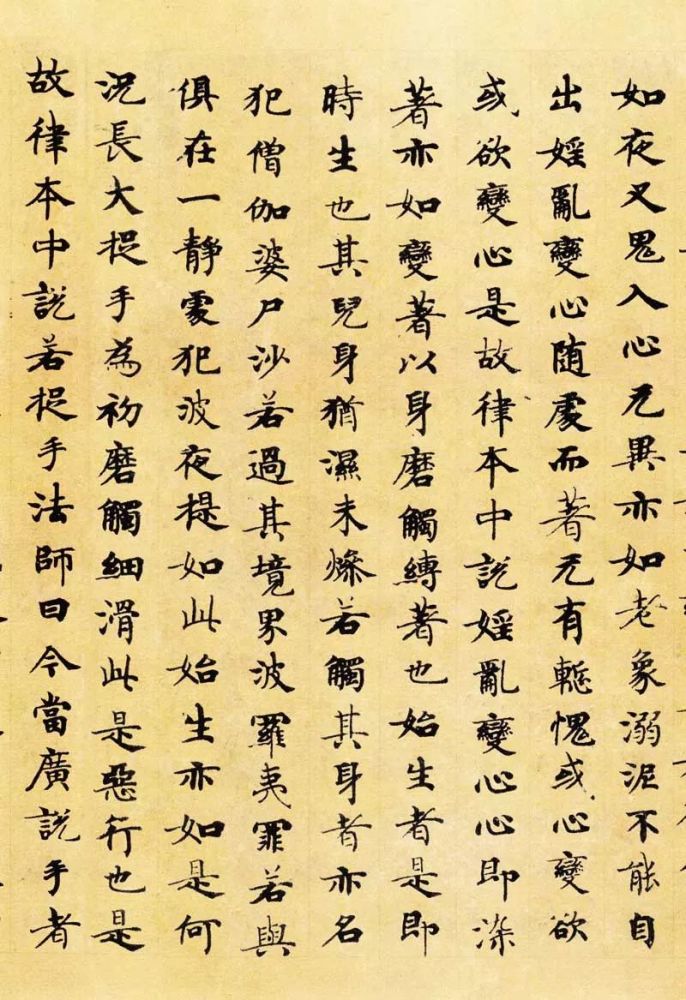 如夜叉鬼入心无異亦如老象溺泥不能自
出婬亂變心随處而著无有慙愧或心變欲
或欲變心是故律本中説婬亂變心心即染
著亦如變著以身磨觸縛著也始生者是即
時生也其兒身猶濕未燥若觸其身者亦名
犯僧伽婆尸沙若過其境界波羅夷罪若與
俱在一静處犯波夜提如此始生亦如是何
況長大捉手為初磨觸細滑此是惡行也是
故律本中説若捉手法師曰今當廣説手者